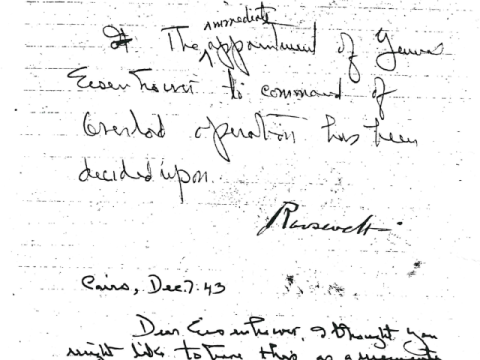 immediate
The appointment of General
Eisenhower to command of
Overlord operation has been
decided upon.
Roosevelt
Cairo, Dec 7. 43
Dear Eisenhower, I thought you
might like to have this as a memento